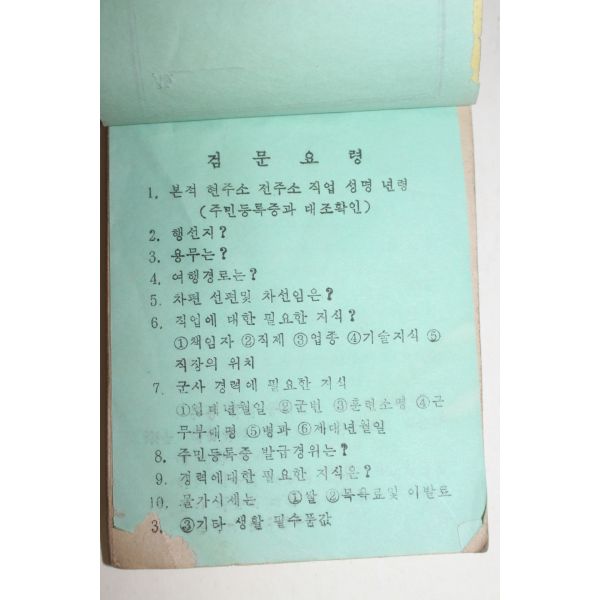 검문요령
1. 본적 현주소 전주소 직업 성명 년령
(주민등록증과 대조확인)
2. 행선지?
3. 용무는?
4. 여행경로는?
5. 차편 선편및 차선임은?
6. 직업에 대한 필요한 지식?
①책임자 ②직제 ③업종 ④기술지식 ⑤
직장의 위치
7. 군사 경력에 필요한 지식
①입대년월일 ②군번 ③훈련소명 ④근
무부대명 ⑤병과 ⑥제대년월일
8. 주민등록증 발급경위는?
9. 경력에대한 필요한 지식은?
10. 물가시세는 ①쌀 ②목욕료및 이발료
3. ③기타 생활 필수품값